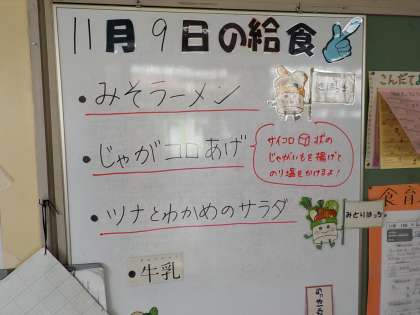 11月9日の給食
・みそラーメン
・じゃがコロあげ
サイコロ状の
じゃがいもを揚げて
のり塩をかけるよ!
・ツナとわかめのサラダ
・牛乳
こんだて
食育